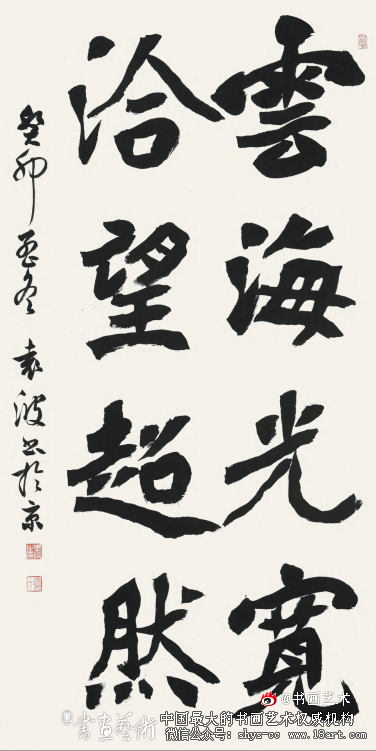 雲海光寬
洽望超然
癸卯孟冬 袁波書於京
書畫藝術
@书画艺术
中国最大的书画艺术权威机构
微信公众号：shys-cc www.18art.com